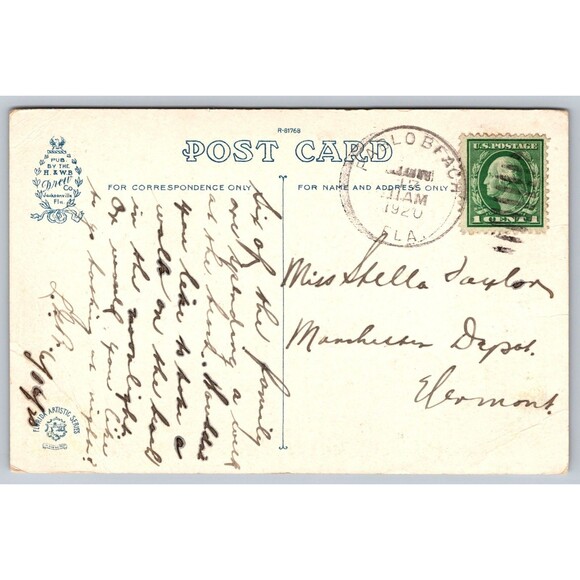 R-81768
POST CARD
PUB.
BY THE
H. & W. B.
DREW
CO.
Jacksonville
Fla.
FOR CORRESPONDENCE ONLY
FOR NAME AND ADDRESS ONLY
PABLO BEACH
11 AM
1920
FLA.
U.S. POSTAGE
1 CENT 1
Six of the family
are spending a week
at the beach. Wouldn't
you like to take a
walk on the beach
in the moonlight
Or would you like
to go bathing at night?
Miss Stella Taylor
Manchester Depot.
Vermont.
FLORIDA ARTISTIC SERIES